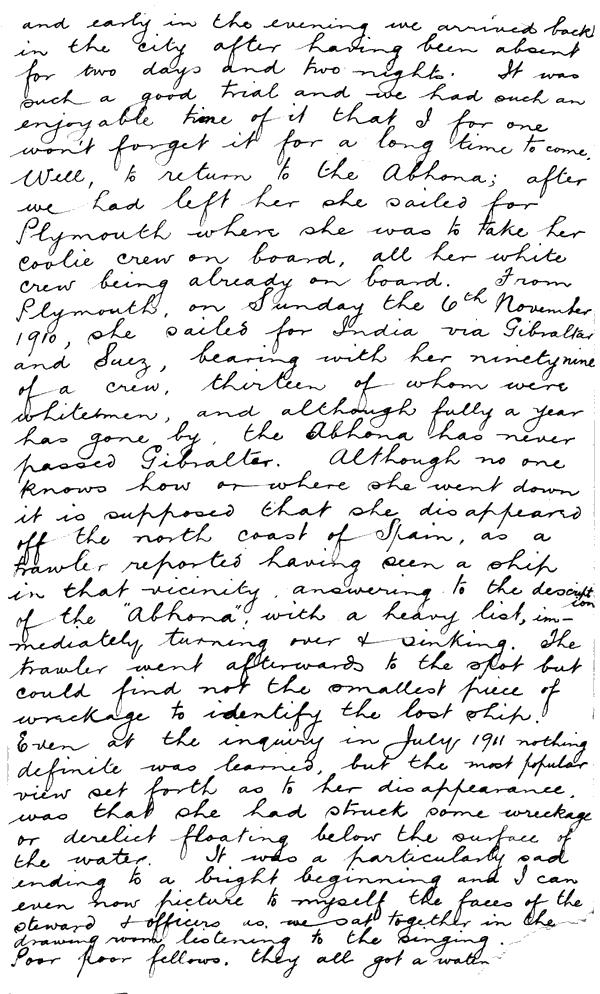 and early in the evening we arrived back
in the city after having been absent
for two days and two nights. It was
such a good trial and we had such an
enjoyable time of it that I for one
won't forget it for a long time to come.
Well, to return to the Abhona; after
we had left her she sailed for
Plymouth where she was to take her
coolie crew on board, all her white
crew being already on board. From
Plymouth, on Sunday the 6th November
1910, she sailed for India via Gibraltar
and Suez, bearing with her ninetynine
of a crew, thirteen of whom were
whitemen, and although fully a year
has gone by, the Abhona has never
passed Gibralter. Although no one
knows how or where she went down
it is supposed that she disappeared
off the north coast of Spain, as a
trawler reported having seen a ship
in that vicinity, answering to the description
of the "Abhona", with a heavy list, im-
mediately turning over & sinking. The
trawler went afterwards to the spot but
could find not the smallest piece of
wreckage to identify the lost ship.
Even at the inquiry in July 1911 nothing
definite was learned, but the most popular
view set forth as to her disappearance,
was that she had struck some wreckage
or derelict floating below the surface of
the water. It was a particularly sad
ending to a bright beginning and I can
even now picture to myself the faces of the
steward & officers as we sat together in the
drawing room listening to the singing.
Poor poor fellows. they all got a water